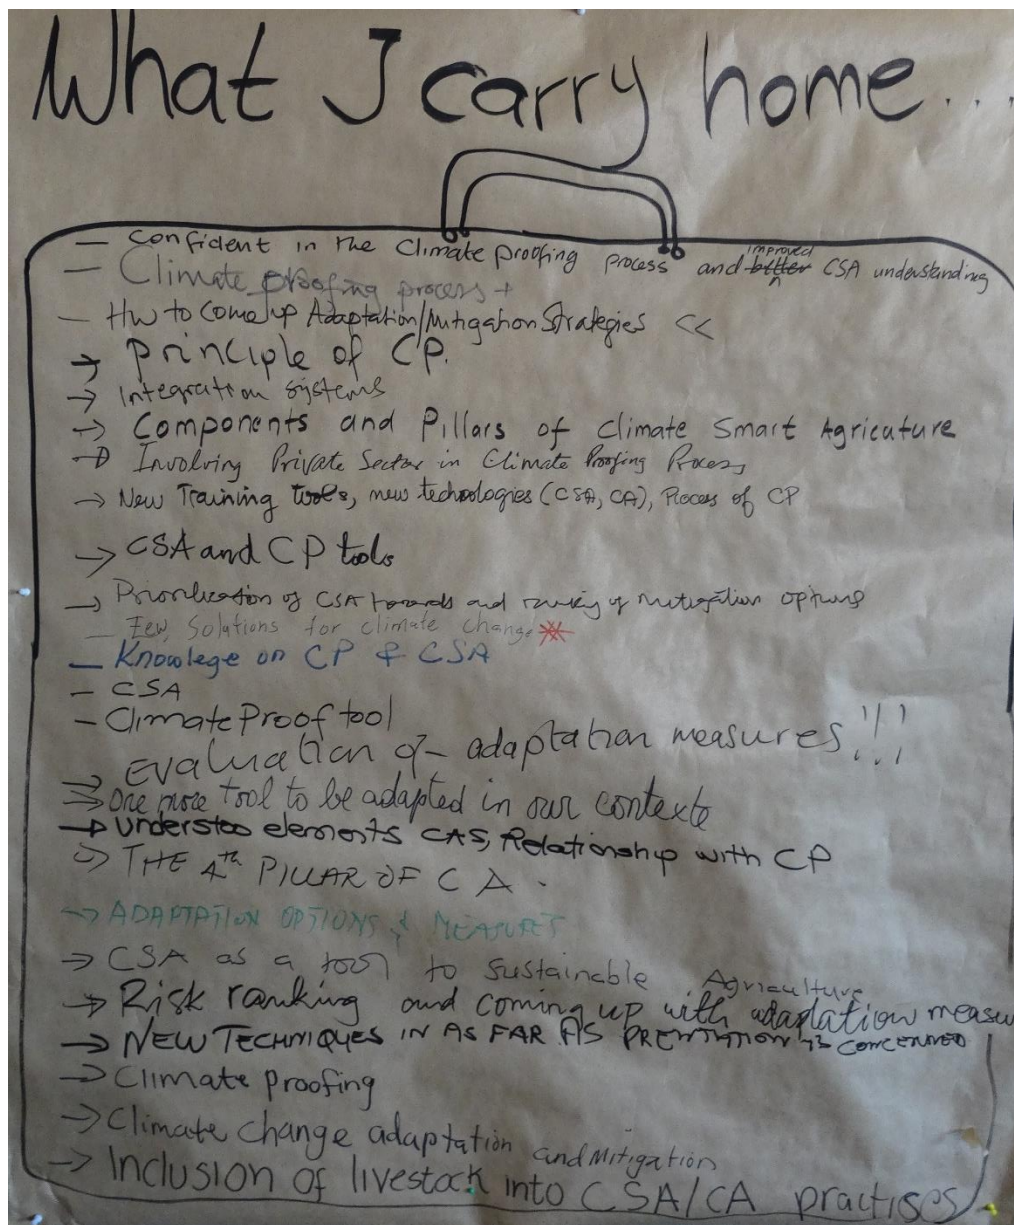 What I carry home...
— Confident in the Climate proofing process and improved better CSA understanding
— Climate proofing process +
— Hw to Come up Adaptation/Mitigation Strategies <<
→ principle of CP.
→ Integration systems
→ Components and Pillars of Climate Smart Agricuture
→ Involving Private Sector in Climate Proofing Process
→ New Training tools, new technologies (CSA, CA), Process of CP
→ CSA and CP tools
→ Prioritization of CSA towards and ranking of mitigation options
— Few Solutions for climate change
— Knowlege on CP & CSA
— CSA
— Climate Proof tool
Evaluation of adaptation measures!!!
→ One more tool to be adapted in our contexte
→ Understoo elements CAS, Relationship with CP
→ THE 4th PILLAR OF CA.
→ ADAPTATION OPTIONS & MEASURES
→ CSA as a tool to sustainable Agriculture
→ Risk ranking and coming up with adaptation measu
→ NEW TECHNIQUES IN AS FAR AS IS CONCERNED
→ Climate proofing
→ Climate change adaptation and Mitigation
→ Inclusion of livestock into CSA/CA practises